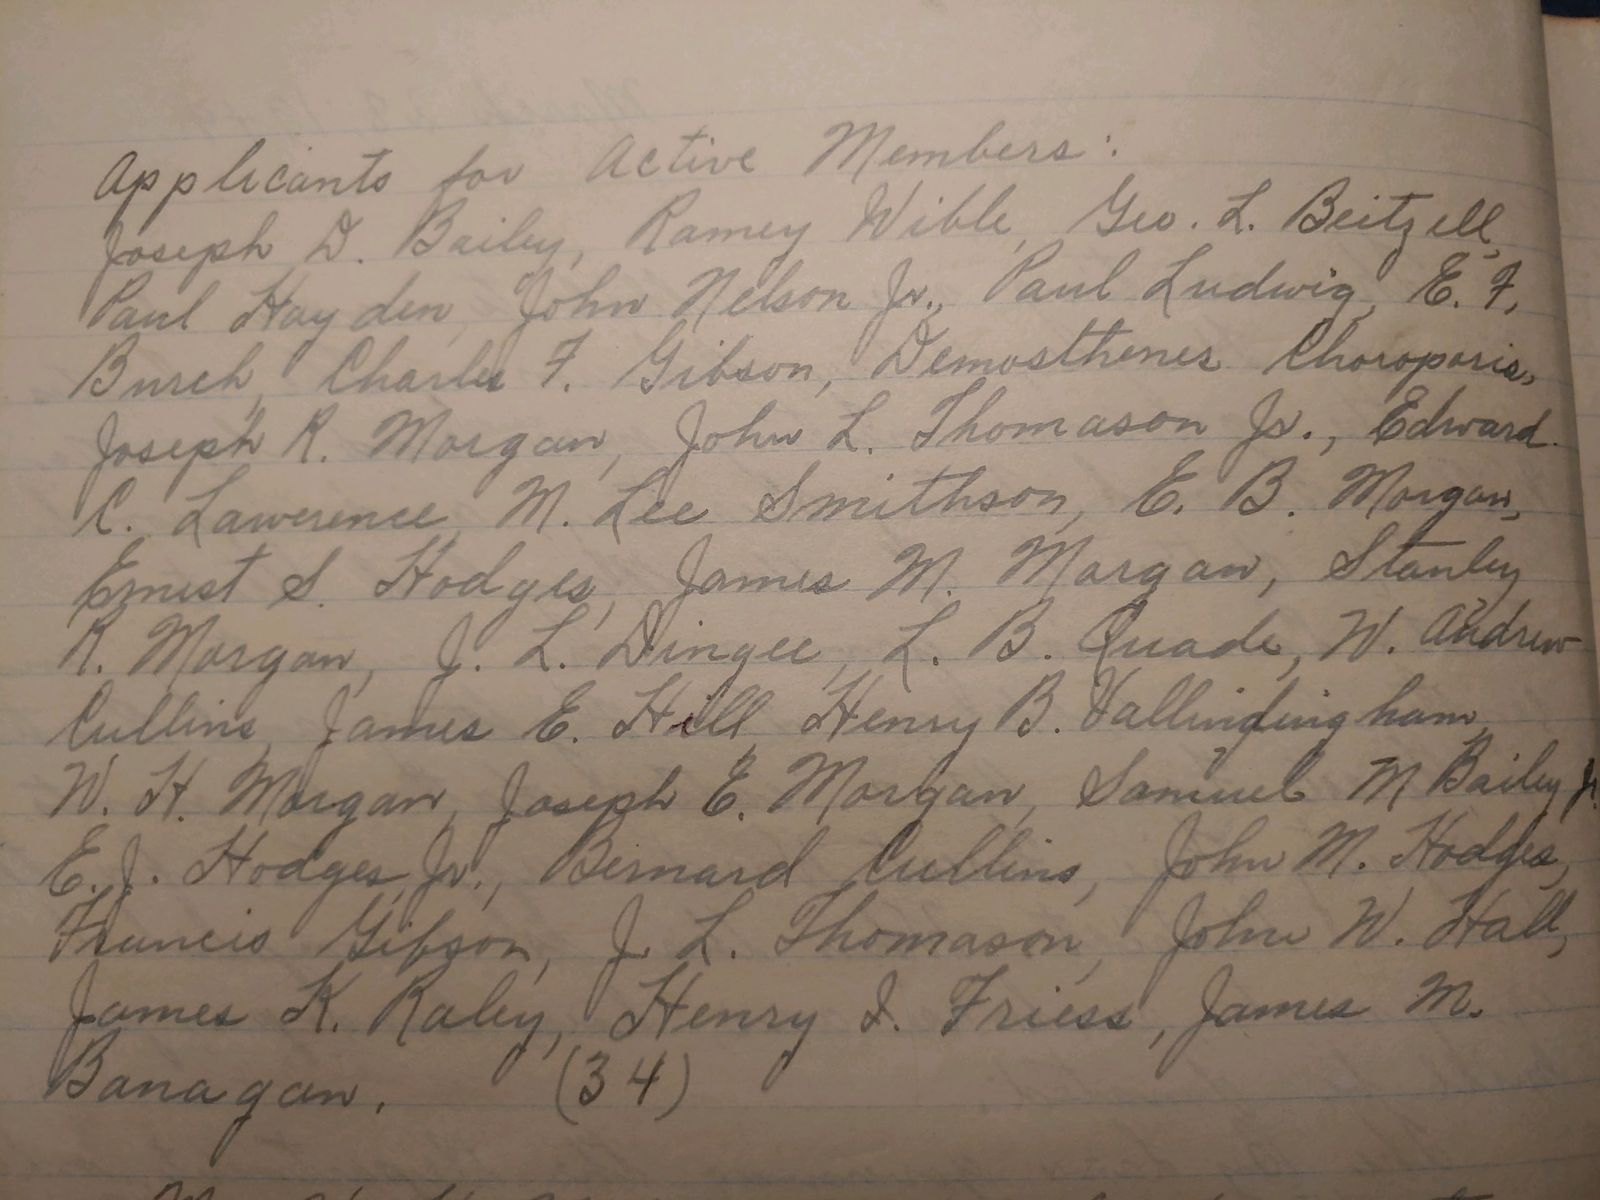 Applicants for Active Members:
Joseph D. Bailey, Ramey Wible, Geo. L. Beitzell,
Paul Hayden, John Nelson Jr., Paul Ludwig, E. F.
Burch, Charles F. Gibson, Demosthenes Choroporis,
Joseph R. Morgan, John L. Thomason Jr., Edward
C. Lawerence, M. Lee Smithson, E. B. Morgan,
Ernest S. Hodges, James M. Morgan, Stanley
R. Morgan, J. L. Dingee, L. B. Quade, W. Andrew
Cullins, James E. Hill, Henry B. Vallindingham,
W. H. Morgan, Joseph E. Morgan, Samuel M Bailey Jr.
E. J. Hodges, Jr., Bernard Cullins, John M. Hodges,
Francis Gibson, J. L. Thomason, John W. Hall,
James K. Raley, Henry I. Friess, James M.
Banagan. (34)